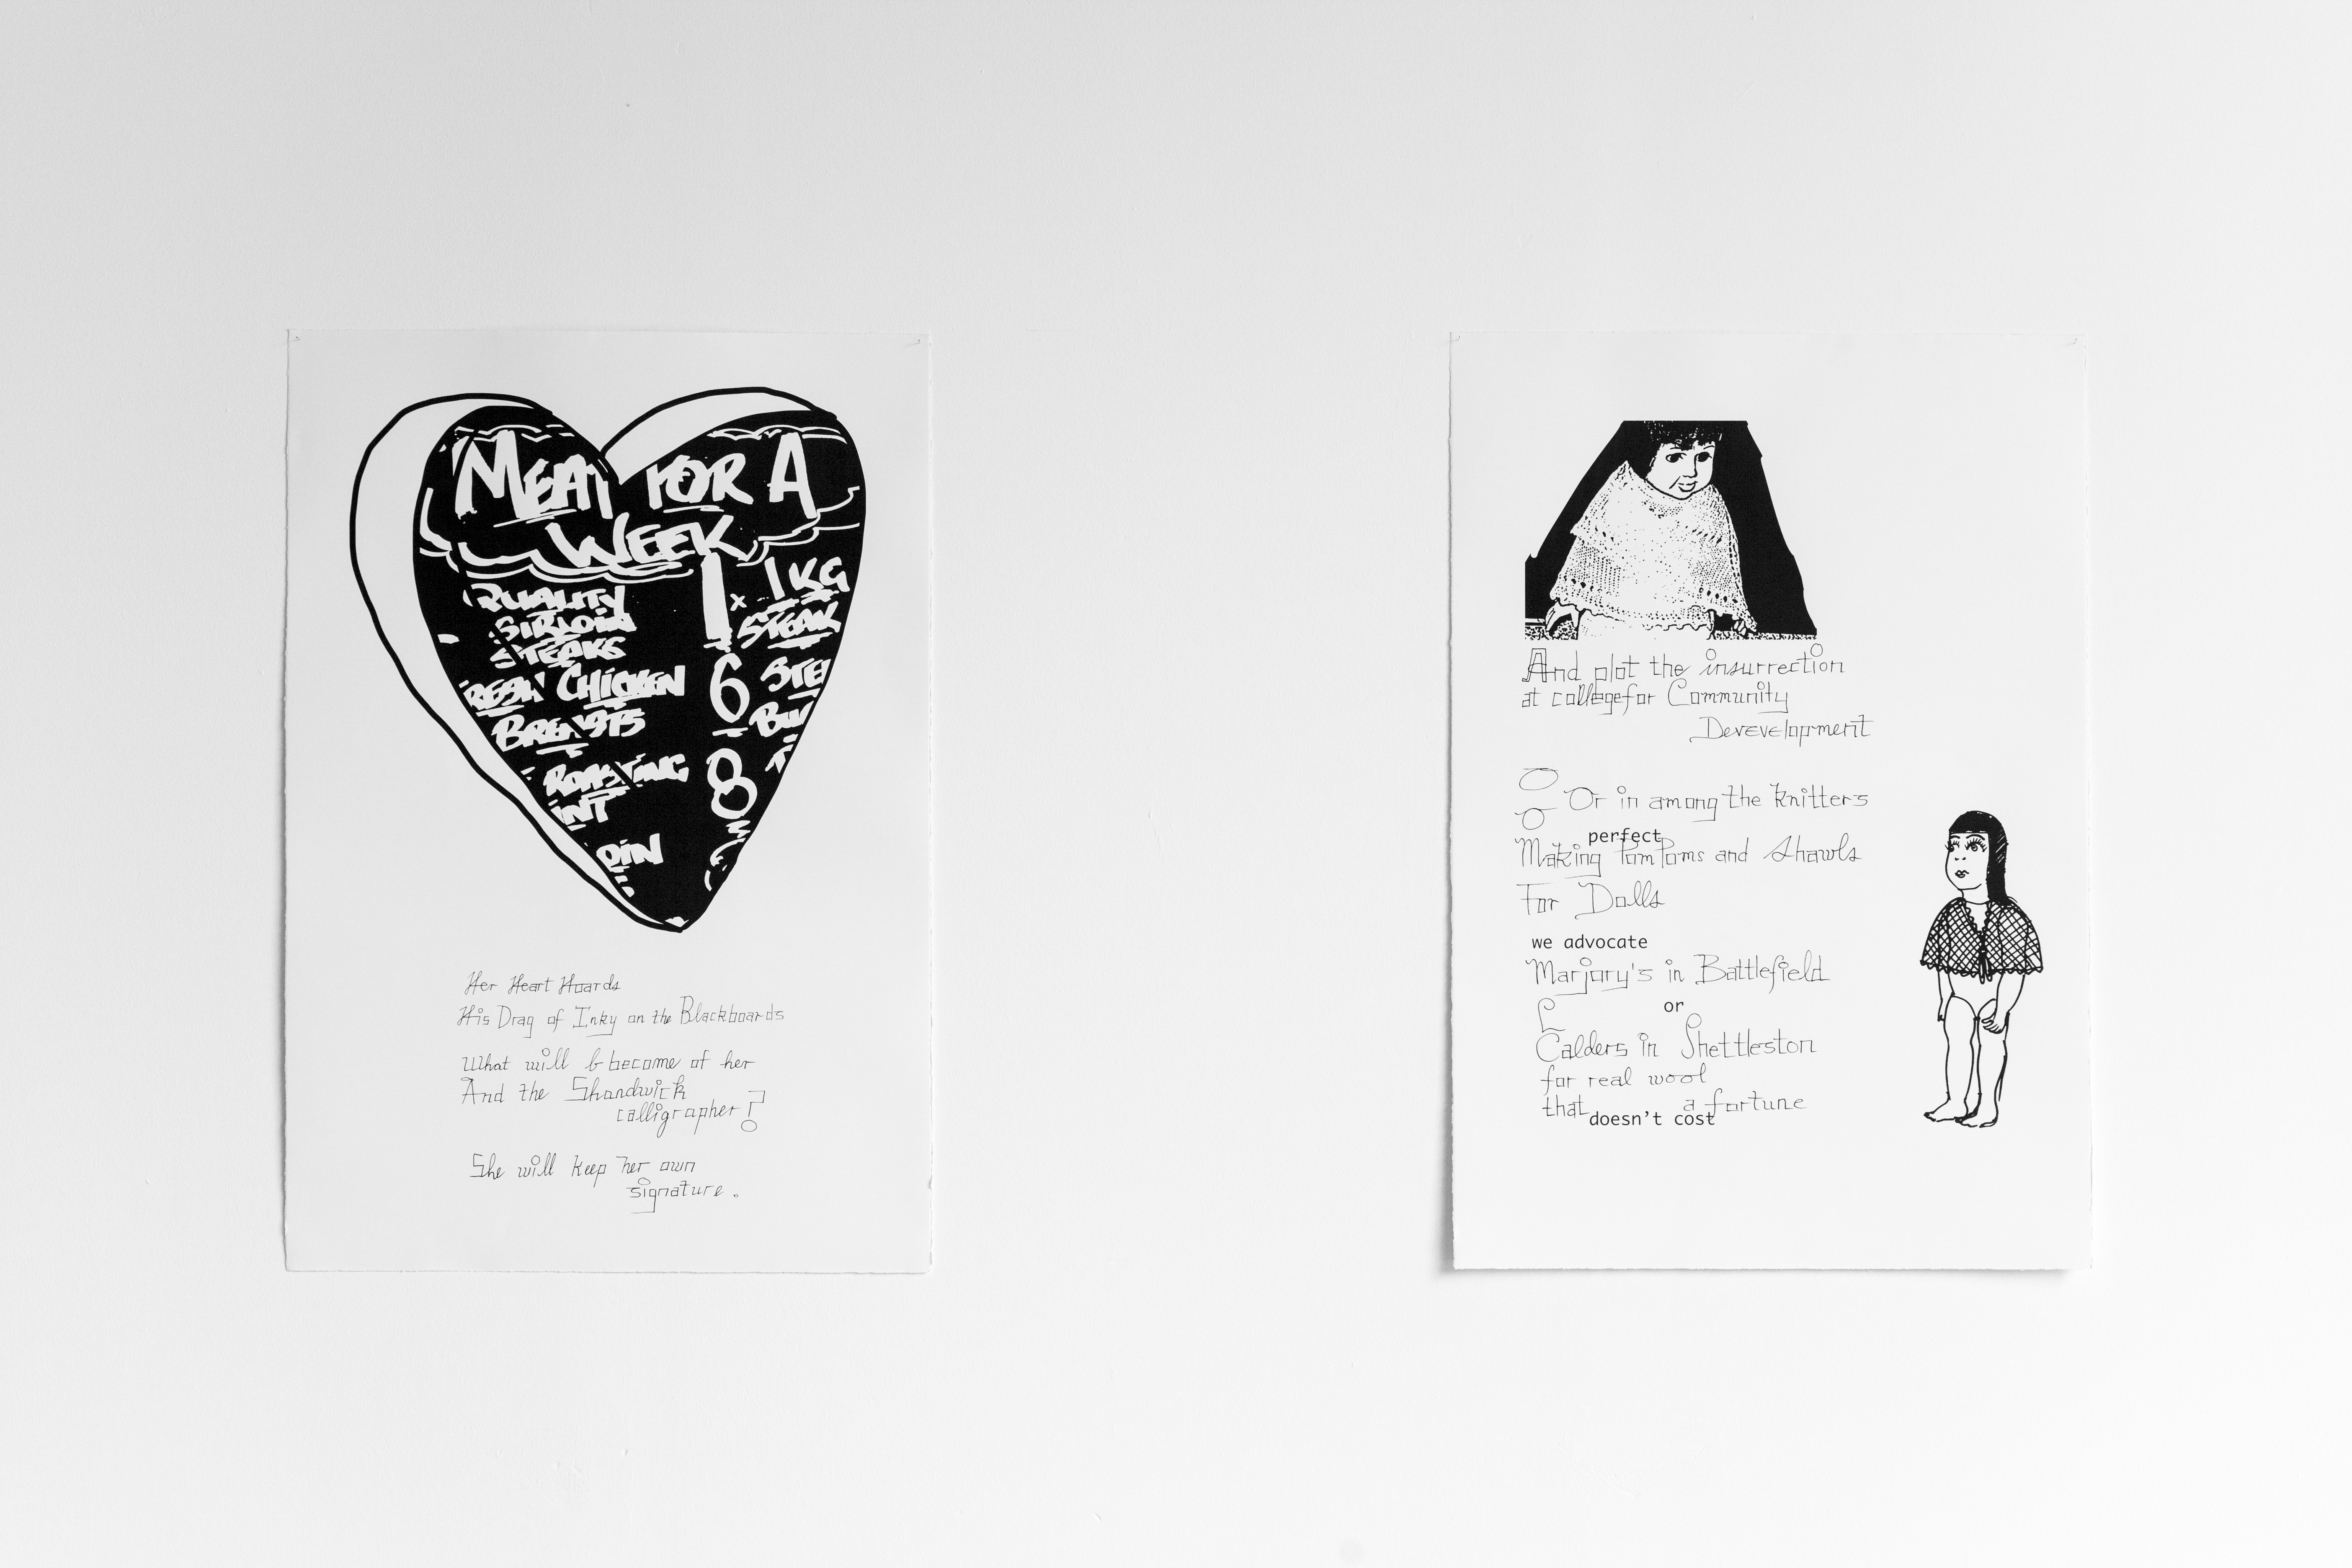 MEAT FOR A
WEEK
QUALITY
SIRLOIN
STEAKS
1 x 1KG
STEAK
RESH CHICKEN
BREASTS
6 STE
BU
ROASTING
INT
8
OIN
Her Heart Hoards
His Drag of Inky on the Blackboards
What will b become of her
And the Shandwick
calligrapher?
She will keep her own
signature.
And plot the insurrection
at college for Community
Devevelopment
O
O Or in among the knitters
perfect
Making PomPoms and Shawls
For Dolls
we advocate
Marjory's in Battlefield
or
Calders in Shettleston
for real wool
that doesn't cost a fortune